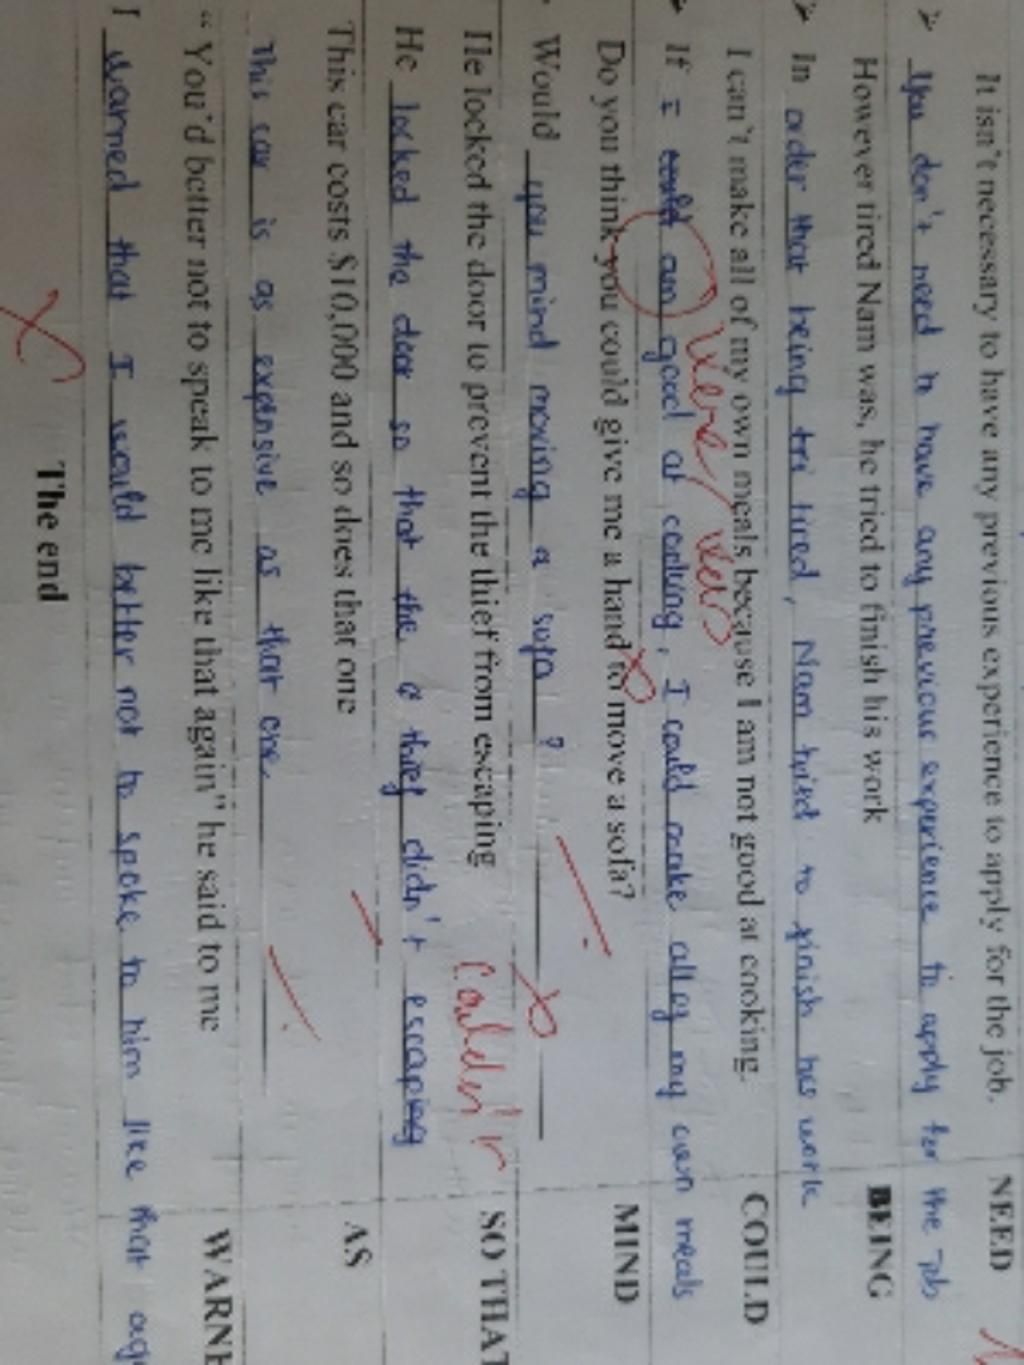 It isn't necessary to have any previous experience to apply for the job. NEED
You don't need to have any previous experience to apply for the job
However tired Nam was, he tried to finish his work BEING
In order that being tired, Nam tried to finish his work
I can't make all of my own meals because I am not good at cooking. COULD
were/was
If I good at cooking, I could make all of my own meals
Do you think you could give me a hand to move a sofa? MIND
Would you mind moving a sofa ?
He locked the door to prevent the thief from escaping SO THAT
couldn't
He locked the door so that the thief didn't escaping
This car costs $10,000 and so does that one AS
This car is as expensive as that one.
" You'd better not to speak to me like that again" he said to me WARNE
I warned that I would better not to spoke to him like that
The end